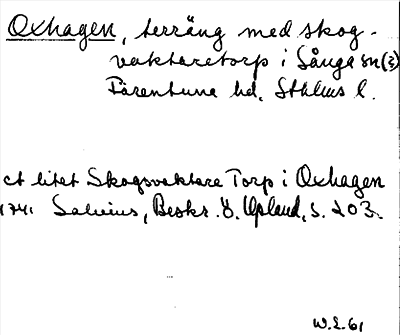 Oxhagen, terräng med skog-
vaktaretorp i Sånga sn(3)
Färentuna hd. Sthlms l.
et litet Skogsvaktare Torp i Oxhagen
1741 Salvius, Beskr. ö. Upland, s. 203.
W.E. 61